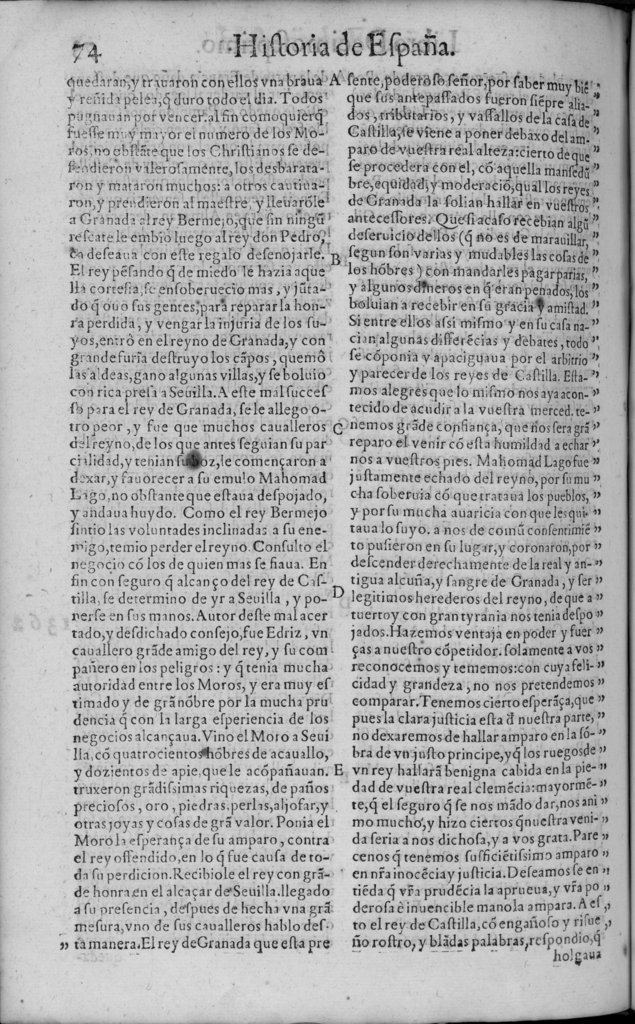 74
Historia de España.
quedaran, y trauaron con ellos vna braua
y reñida pelea, q̃ duro todo el dia. Todos
pugnauan por vencer. al fin comoquierq̃
fuesse muy mayor el numero de los Mo-
ros, no obstãte que los Christianos se de-
fendieron valerosamente, los desbarata-
ron y mataron muchos: a otros cautiua-
ron, y prendieron al maestre, y lleuarõle
a Granada al rey Bermejo, que sin ningũ
rescate le embio luego al rey don Pedro,
ca deseaua con este regalo desenojarle.
El rey pẽsando q̃ de miedo le hazia aque
lla cortesia, se ensoberuecio mas, y jũta-
do q̃ ouo sus gentes, para reparar la hon-
ra perdida, y vengar la injuria de los su-
yos, entrò en el reyno de Granada, y con
grande furia destruyo los cãpos, quemò
las aldeas, gano algunas villas, y se boluio
con rica presa a Seuilla. A este mal succes
so para el rey de Granada, se le allego o-
tro peor, y fue que muchos caualleros
del reyno, de los que antes seguian su par
cialidad, y tenian su boz, le començaron a
dexar, y fauorecer a su emulo Mahomad
Lago, no obstante que estaua despojado,
y andaua huydo. Como el rey Bermejo
sintio las voluntades inclinadas a su ene-
migo, temio perder el reyno. Consulto el
negocio cõ los de quien mas se fiaua. En
fin con seguro q̃ alcanço del rey de Cas-
tilla, se determino de yr a Seuilla, y po-
nerse en sus manos. Autor deste mal acer
tado, y desdichado consejo, fue Edriz, vn
cauallero grãde amigo del rey, y su com
pañero en los peligros: y q̃ tenia mucha
autoridad entre los Moros, y era muy es
timado y de grã nõbre por la mucha pru
dencia q̃ con la larga esperiencia de los
negocios alcançaua. Vino el Moro a Seui
lla, cõ quatrocientos hõbres de acauallo,
y dozientos de apie, que le acõpañauan.
truxeron grãdissimas riquezas, de paños
preciosos, oro, piedras, perlas, aljofar, y
otras joyas y cosas de grã valor. Ponia el
Moro la esperança de su amparo, contra
el rey offendido, en lo q̃ fue causa de to-
da su perdicion. Recibiole el rey con grã-
de honra en el alcaçar de Seuilla. llegado
a su presencia, despues de hecha vna grã
mesura, vno de sus caualleros hablo des-
” ta manera. El rey de Granada que esta pre
A
B
C
D
E
sente, poderoso señor, por saber muy biẽ ”
que sus antepassados fueron siẽpre alia- ”
dos, tributarios, y vassallos de la casa de ”
Castilla, se viene a poner debaxo del am- ”
paro de vuestra real alteza: cierto de que ”
se procedera con el, cõ aquella mansedũ ”
bre, equidad, y moderaciõ, qual los reyes ”
de Granada la solian hallar en vuestros ”
antecessores. Que si acaso recebian algũ ”
deseruicio dellos (q̃ no es de marauillar, ”
segun son varias y mudables las cosas de ”
los hõbres) con mandarles pagar parias, ”
y algunos dineros en q̃ eran penados, los ”
boluian a recebir en su gracia y amistad. ”
Si entre ellos assi mismo y en su casa na- ”
cian algunas differẽcias y debates, todo ”
se cõponia y apaciguaua por el arbitrio ”
y parecer de los reyes de Castilla. Esta- ”
mos alegres que lo mismo nos aya acon- ”
tecido de acudir a la vuestra merced. te- ”
nemos grãde confiança, que nos sera grã ”
reparo el venir cõ esta humildad a echar ”
nos a vuestros pies. Mahomad Lago fue ”
justamente echado del reyno, por su mu ”
cha soberuia cõ que trataua los pueblos, ”
y por su mucha auaricia con que les qui- ”
taua lo suyo. a nos de comũ consentimiẽ ”
to pusieron en su lugar, y coronaron, por ”
descender derechamente de la real y an- ”
tigua alcuña, y sangre de Granada, y ser ”
legitimos herederos del reyno, de que a ”
tuerto y con gran tyrania nos tenia despo ”
jados. Hazemos ventaja en poder y fuer ”
ças a nuestro cõpetidor. solamente a vos ”
reconocemos y tememos: con cuya feli- ”
cidad y grandeza, no nos pretendemos ”
comparar. Tenemos cierto esperãça, que ”
pues la clara justicia esta d̃ nuestra parte, ”
no dexaremos de hallar amparo en la sõ- ”
bra de vn justo principe, y q̃ los ruegos de ”
vn rey hallarã benigna cabida en la pie- ”
dad de vuestra real clemẽcia: mayormẽ- ”
te, q̃ el seguro q̃ se nos mãdo dar, nos ani ”
mo mucho, y hizo ciertos q̃ nuestra veni- ”
da seria a nos dichosa, y a vos grata. Pare ”
cenos q̃ tenemos sufficiẽtissimo amparo ”
en nr̃a inocẽcia y justicia. Deseamos se en ”
tiẽda q̃ vr̃a prudẽcia la aprueua, y vr̃a po ”
derosa è inuencible mano la ampara. A es ”
to el rey de Castilla, cõ engañoso y risue ”
ño rostro, y blãdas palabras, respondio, q̃
holgaua